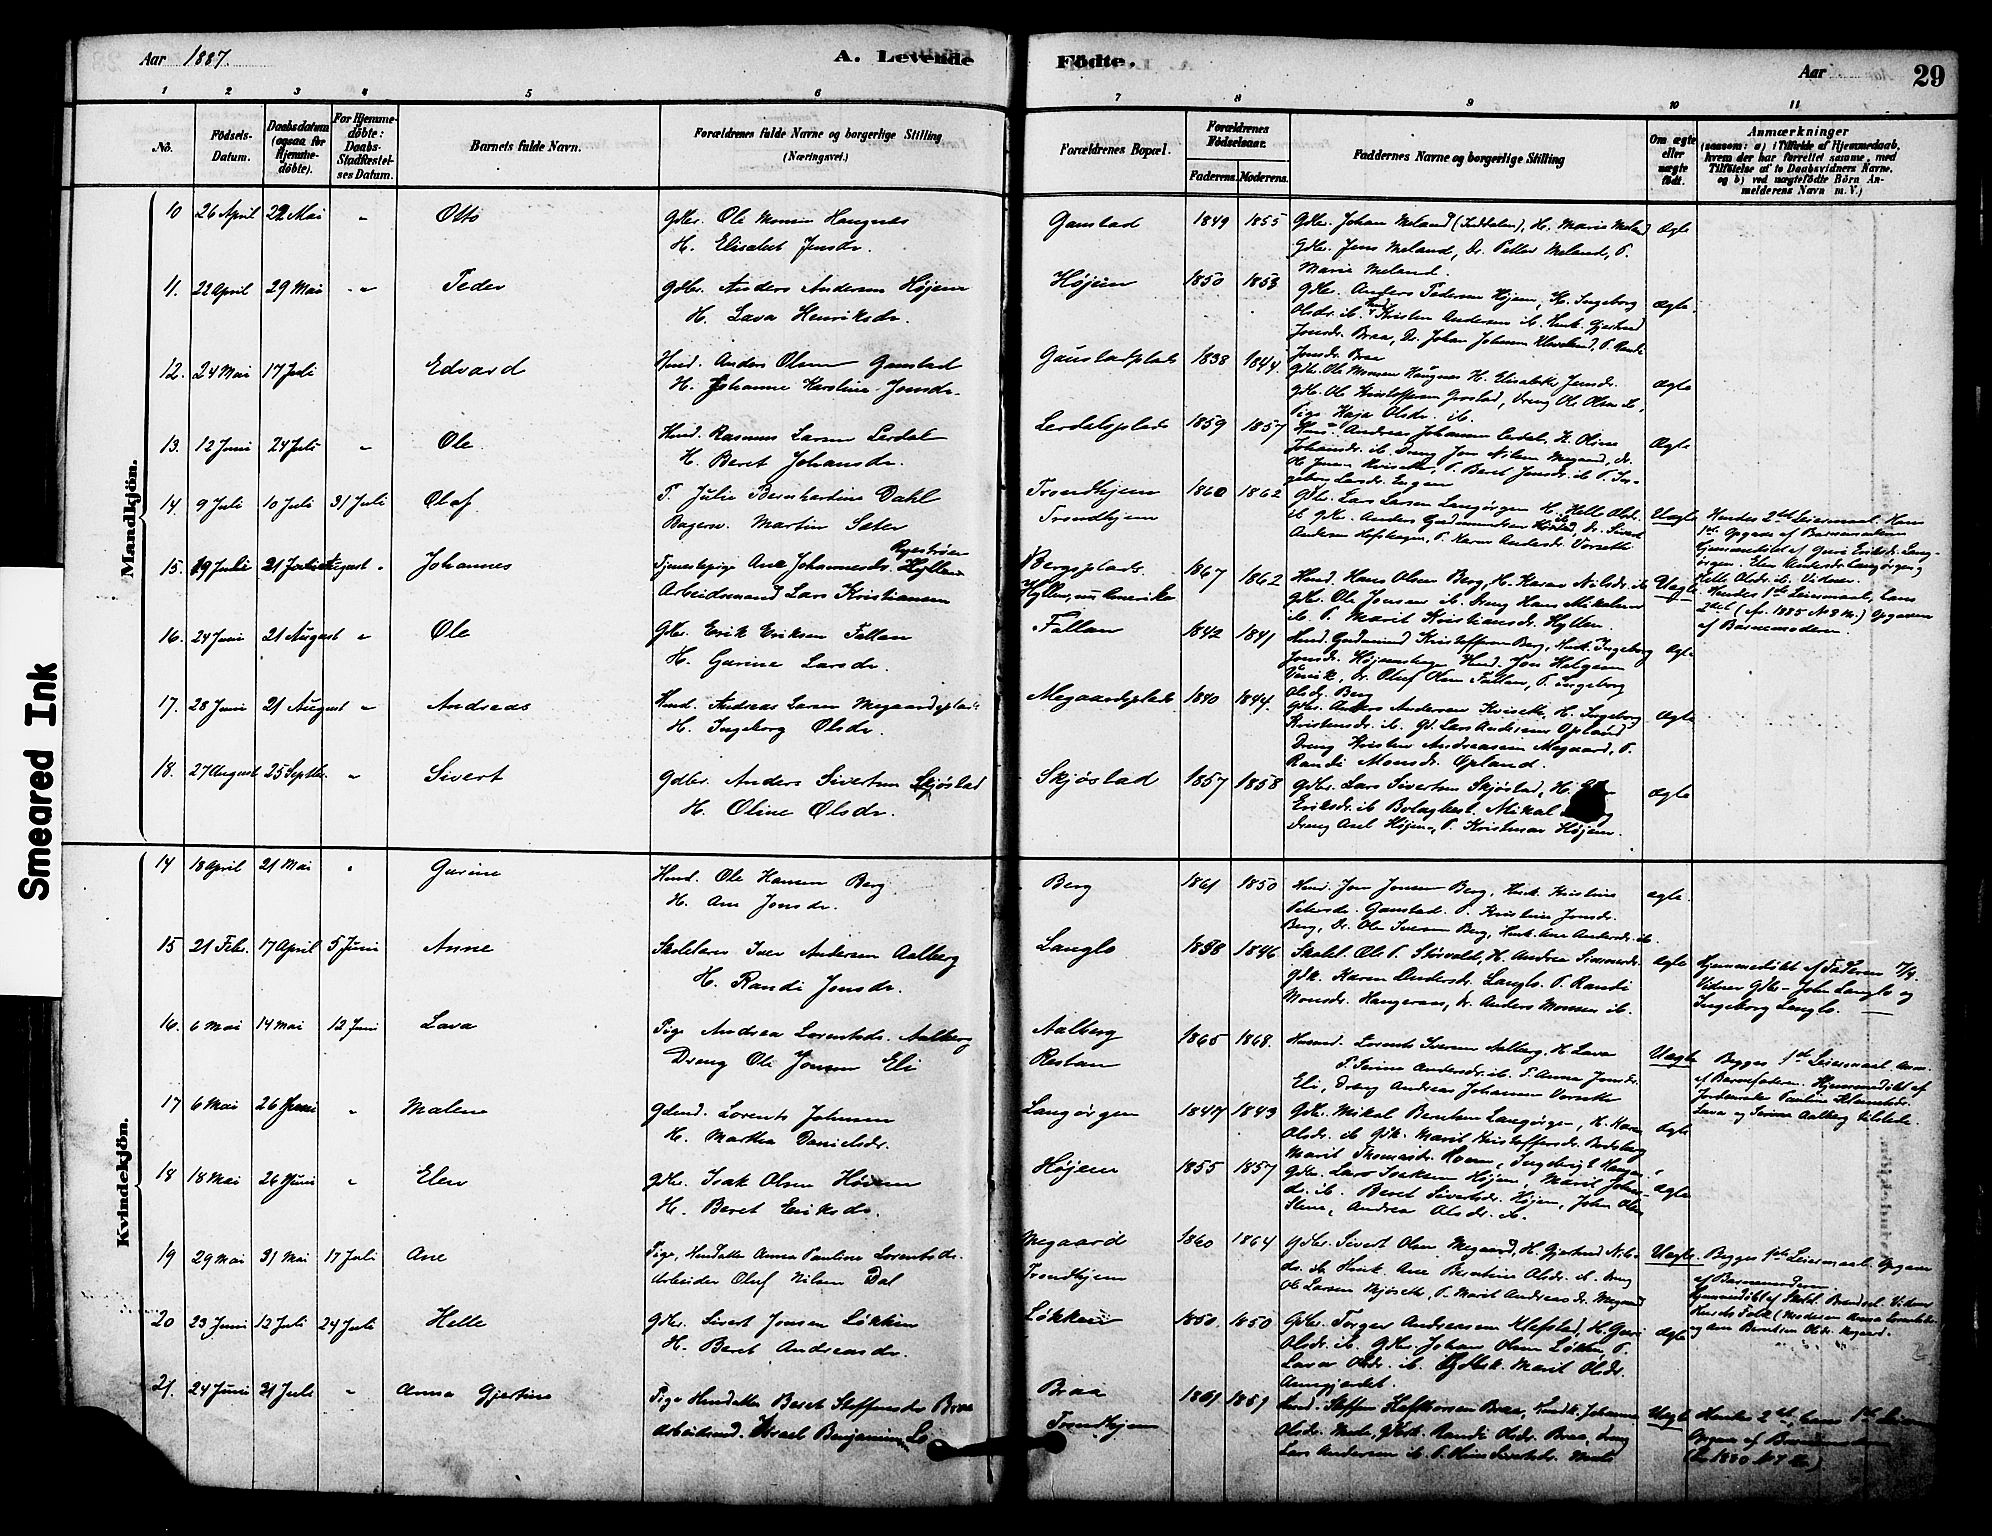 Aar 1887.
A. Levende
Födte.
Aar
29
1
2
3
4
5
6
7
8
9
10
11
No.
Födsels-
Datum.
Daabsdatum
(ogsaa for
Hjemme-
döbte).
For Hjemme-
döbte:
Daabs-
Stadfæstel-
ses Datum.
Barnets fulde Navn.
Forældrenes fulde Navne og borgerlige Stilling
(Næringsvei.)
Forældrenes Bopæl.
Forældrenes
Födselsaar.
Faderens.
Moderens.
Faddernes Navne og borgerlige Stilling
Om ægte
eller
uægte
född.
Anmærkninger
(saasom: a) i Tilfælde af Hjemmedaab,
hvem der har forrettet samme, med
Tilföielse af to Daabsvidners Navne,
og b) ved uægtefödte Börn An-
melderens Navn m. V.)
Smeared Ink
Mandkjön.
10 26 April 22 Mai " Otto
Gbr. Ole Monsen Haugnes
H. Elisabet Jensdr.
Gaustad 1849 1855
Gbr. Johan Meland (Inddalen), H. Marie Meland
Gbr. Jens Meland, Dr. Petter Meland, P.
Marie Meland.
Ægte
11. 22 April 29 Mai " Peder
Gbr. Anders Andersen Højem
H. Lava Henriksdr.
Højem 1850 1853
Gbr. Anders Pedersen Højem, H. Ingeborg
Olsdr. ib. Kristen Andersen ib. Husk. Gjertrud
Jonsdr. Braa, Dr. Johan Johnsen, P. Randi
Jonsdr. Braa
Ægte
12. 24 Mai 17 Juli Edvard
Husd. Anders Olsen Gaustad
H. Johanne Karoline Jonsdr.
Gaustadplads 1838 1844.
Gbr. Ole Monsen Haugnes H. Elisabeth Jensdr.
Gbr. Ole Kristoffersen, Dreng Ole Olsen ib,
Pige Kaja Olsdr. ib.
Ægte
13. 12 Juni 24 Juli " Ole.
Husd. Rasmus Larsen Lerdal
H. Beret Johansdr.
Lerdalsplads 1859 1857
Husd. Andreas Johansen Lerdal, H. Oline
Johansdr. ib Dreng Jon Nilsen Megaard, dr.
P. Beret Jonsdr. ib P. In-
geborg Larsdr. Engen
Ægte
14. 9 Juli 10 Juli 31 Juli Olaf.
P. Julie Bernhardine Dahl
Bagersv. Martin Sæter
Trondhjem
Trondhjem
1860 1862
Gbr. Lars Larsen Langørgen H. Helle Olsdr.
ib Gbr. Anders Gudmundsen, dr. Sivert
Andersen, P. Karen Andersdr. Vorseth
Uægte
Hendes 2det Leiermaal. Hans
1ste. Opgave af Barnemoderen
Hjemmedøbt af Guri Eriksdr. Lang-
ørgen. Elen Andersdr. Langørgen og
Helle Olsdr. ib. Vidner.
15. 19 Juli 21 August " Johannes
Tjenestepige Ane Johannesdr. Hyllen
Arbeidsmand Lars Kristiansen
Bergsplads
Hyllen, nu Amerika
1867 1862
Husd. Hans Olsen Berg, H. Karen Nilsdr. ib
Gbr. Ole Jonsen ib. Dreng Hans Mikalsen
ib P. Marit Kristiansdr. Hyllen.
Uægte
Hendes 1ste Leiermaal, hans
2det (cf. 1885 N 8 M.) Opgaven
af Barnemoderen.
16. 24 Juni 21 August " Ole
Gbr. Erik Eriksen Fallan
H. Gurine Larsdr.
Fallan 1842 1841
Husd. Gudmund Kristoffersen Berg, Husk. Ingeborg
Jonsdr. Højemshage Husd. Jon Halgesen
Dr. Oluf Olsen Fallan, P. Ingeborg
Olsdr. Berg
Ægte
17. 28 Juni 21 August " Andreas
Husd. Andreas Larsen Megaardsplads
H. Ingeborg Olsdr.
Megaardsplads 1840 1844.
Gbr. Anders Andersen Kviseth, H. Ingeborg
Kristensdr. ib. Gd. Lars Andersen Opland
Dreng Kristen Andreassen Megaard, P.
Randi Monsdr. Opland.
Ægte
18. 27 August 25 Septbr. " Sivert
Gdbr. Anders Sivertsen Skjøstad
H. Oline Olsdr.
Skjøstad 1857 1858
Gbr. Lars Sivertsen Skjøstad, H.
Eriksdr. ib Mikal
dreng Axel Højem, P. Kristense Højem.
Ægte
Kvindekjön.
14 18 April 21 Mai " Gurine
Husd. Ole Hansen Berg.
H. Ane Jonsdr.
Berg 1861 1850
Husd. Jon Jonsen Berg, Husk. Kristine
Petersdr. Gaustad. P. Kristine Jonsdr.
Berg, Dr. Ole Iversen Berg, Husk. Ane Andersdr. ib.
Ægte.
15 21 Feb. 17 April 5 Juni Anne
Skolelærer Iver Andersen Aalberg
H. Randi Jonsdr.
Langlo 1838 1846
Skolel. Ole P. Størvold, H. Andrea Simonsdr.
Gdk. Karen Andersdr. Langlo. P. Randi
Monsdr. Haugeraa, Dr. Anders Monsen ib.
Ægte
Hjemmedøbt af Faderen 17/4.
Vidner Gbr. John Langlo og
Ingeborg Langlo.
16. 6 Mai 14 Mai 12 Juni Lava
Pige Andrea Lorentsdr. Aalberg
Dreng Ole Jonsen Eli
Aalberg
Restan
1865 1868.
Husmd. Lorents Iversen Aalberg, H. Lava
P. Serine Andersdr. ib. P. Anna Jonsdr.
Eli, Dreng Andreas Johansen Vorseth
Uægte
Begges 1ste Leiermaal. Anm.
af Barnefaderen. Hjemmedøbt af
Jordemoder Pauline
Lava og Serine Aalberg tilstede.
17 6 Mai 26 Juni " Malene
Gdmd. Lorents Johnsen
H. Martha Danielsdr.
Langørgen 1847 1843
Gbr. Mikal Berntsen Langørgen, H. Karen
Olsdr. ib Gdk. Marit Kristoffersdr. Bodsberg
Marit Thomasdr. Moen, Ingebrigt Haugen
Ægte
18 18 Mai 26 Juni " Elen
Gbr. Isak Olsen Højem
H. Beret Eriksdr.
Højem 1855 1857
Gbr. Lars Isaksen Højem, Marit Johns-
dr. ib. Beret Sivertsdr. Højem, John Olsen
Stene, Andrea Olsdr. ib.
Ægte
19 29 Mai 31 Mai 17 Juli Ane
Pige, Husdatter Anna Pauline Lorentsdr.
Arbeider Oluf Nilsen Dal
Megaard
Trondhjem
1860 1864
Gbr. Sivert Olsen Megaard, H. Gjertrud Nils-
dr. ib Husk. Ane Berntine Olsdr. ib. Dreng
Ole Larsen Mjøseth, P. Marit Andreasdr. Megaard
Uægte
Begges 1ste Leiermaal. Opgave
af Barnemoderen.
Hjemmedøbt af Skoll. Vidner
Husets Folk (Moderen Anna Lorentsdr.
og Ane Berntine Olsdr. Megaard.
20 23 Juni 12 Juli 24 Juli Helle
Gbr. Sivert Jonsen Løkken
H. Beret Andreasdr.
Løkken 1850. 1850
Gbr. Torger Andreasen Klefstad, H. Guri
Olsdr. ib. Gbr. Johan Olsen Løkken P.
Lava Olsdr. ib. Gdbsk. Marit Olsdr.
Ægte
21. 24 Juni 31 Juli " Anna Gjertine
Pige Husdatter Beret Steffensdr. Braa
Arbeidsmd. Israel Benjaminsen Lo
Braa
Trondhjem
1861 1859
Husd. Steffen Braa, Husk. Johanna
Olsdr. Gbsk. Randi Olsdr. Braa, Dreng
Lars Andersen ib. P. Sivertsdr.
Uægte
Hendes 2det, hans 1ste Leierm.
Opgave af Barnemoderen